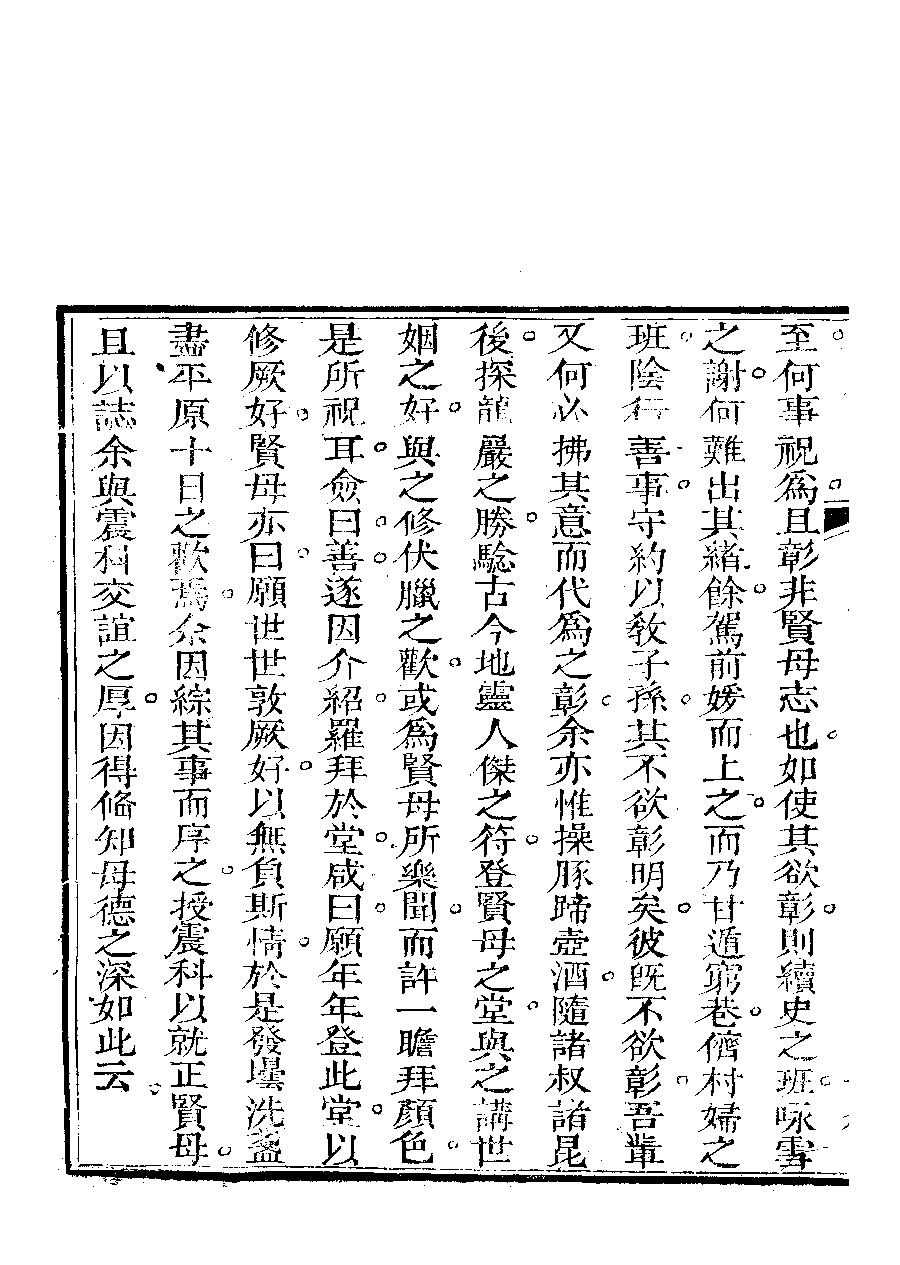 至何事祝為且彰非賢母志也如使其欲彰則續史之班咏雪
之謝何難出其緒餘駕前媛而上之而乃甘遁窮巷儕村婦之
班陰行善事守約以敎子孫其不欲彰明矣彼旣不欲彰吾輩
又何必拂其意而代爲之彰余亦惟操豚蹄壺酒隨諸叔諸昆
後探龍巖之勝騐古今地靈人傑之符登賢母之堂與之講世
姻之好與之修伏臘之歡或爲賢母所樂聞而許一瞻拜顏色
是所祝耳僉曰善遂因介紹羅拜於堂咸曰願年年登此堂以
修厥好賢母亦曰願世世敦厥好以無負斯情於是發壜洗盞
盡平原十日之歡焉余因綜其事而序之授震科以就正賢母
且以誌余與震科交誼之厚因得偹知母德之深如此云